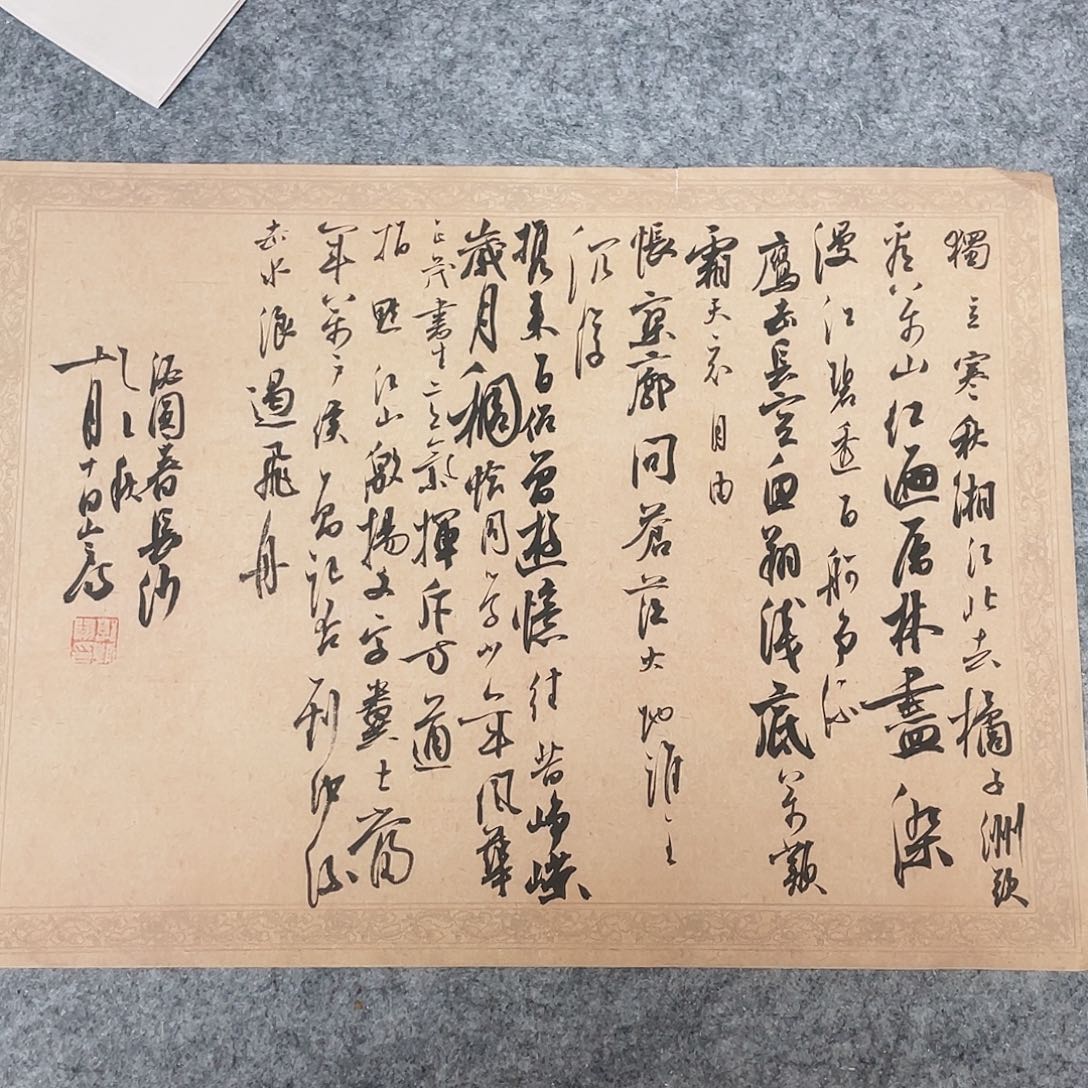 獨立寒秋湘江北去橘子洲頭
看萬山红遍层林盡染
漫江碧透百舸争流
鹰击長空鱼翔浅底萬類
霜天竞自由
悵寥廓問蒼茫大地谁主
沉浮
携来百侣曾遊憶往昔峥嵘
歲月稠恰同学少年风華
正茂書生意氣揮斥方遒
指點江山激揚文字糞土當
年萬户侯曾记否到中流
击水浪遏飛舟
沁園春長沙
秋
十月十日山